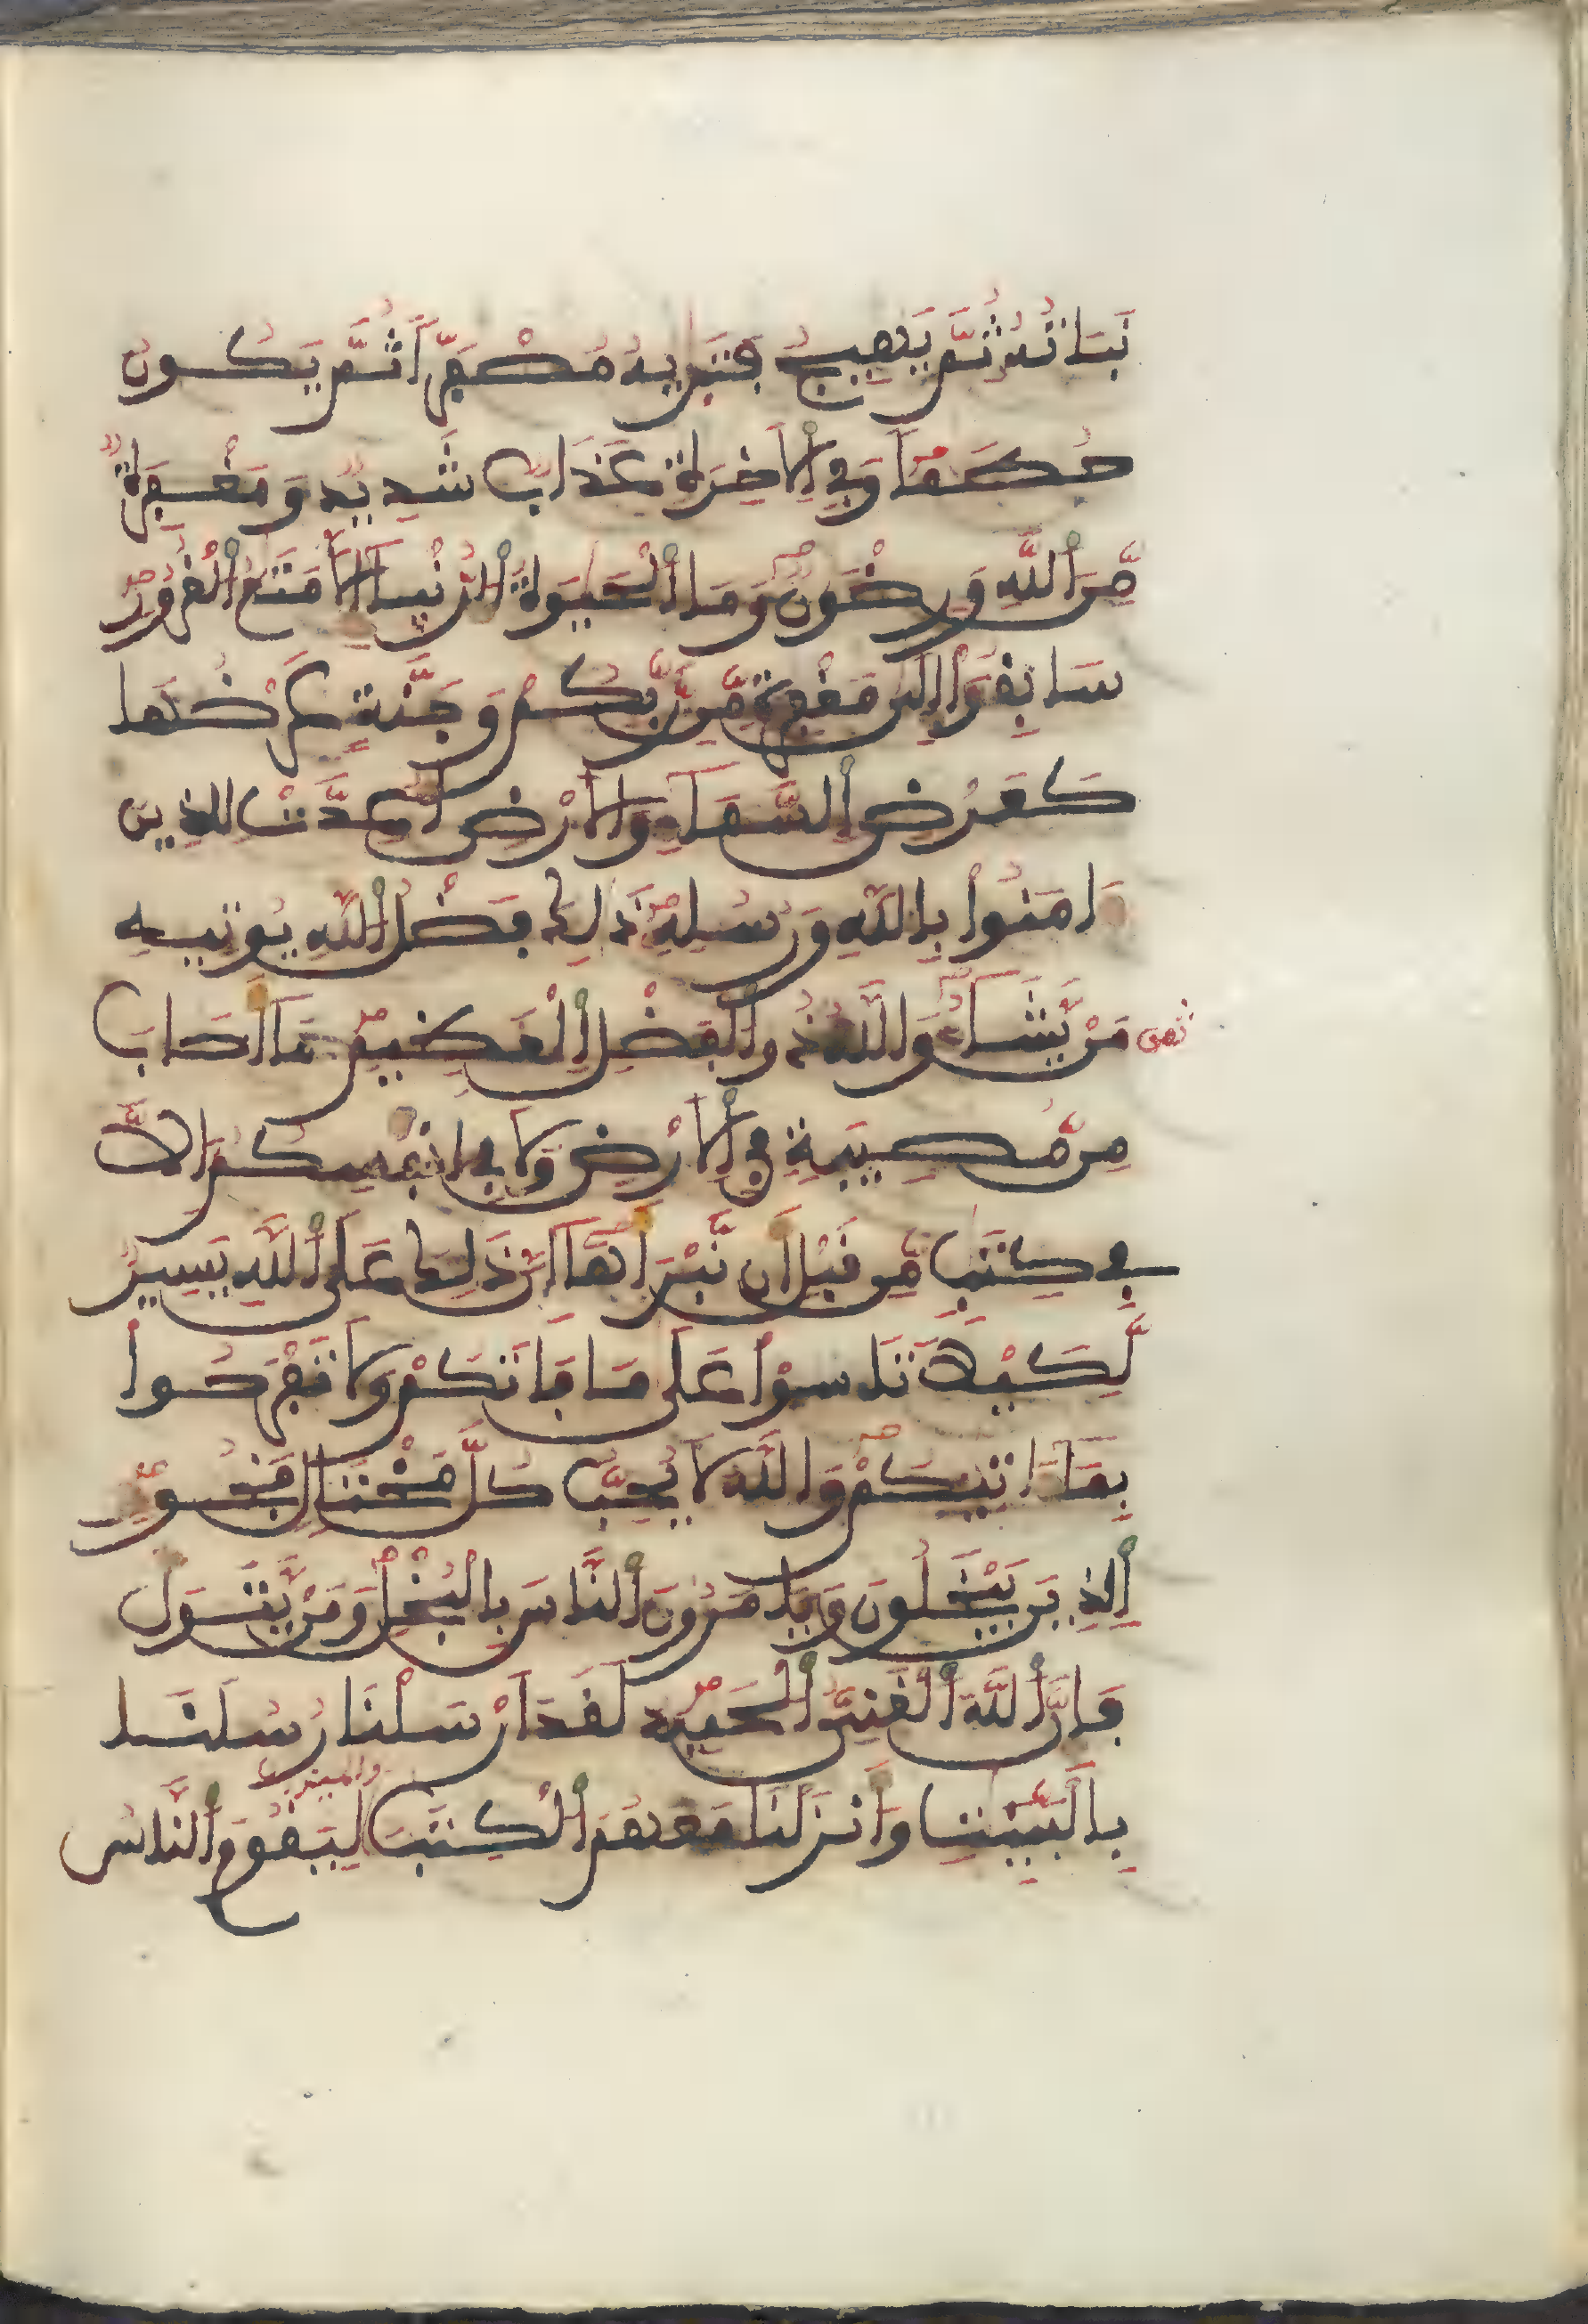 نَبَاتُهُۥ ثُمَّ يَهِيجُ فَتَر۪يٰهُ مُصْفَرّاٗ ثُمَّ يَكُونُ
حُطَٰماٗ وَفِي اِ۬لَاخِرَةِ عَذَابٞ شَدِيدٞ وَمَغْفِرَةٞ
مِّنَ اَ۬للَّهِ وَرِضْوَٰنٞ وَمَا اَ۬لْحَيَوٰةُ اُ۬لدُّنْيَآ إِلَّا مَتَٰعُ اُ۬لْغُرُورِ
سَابِقُوٓاْ إِلَىٰ مَغْفِرَةٖ مِّن رَّبِّكُمْ وَجَنَّةٍ عَرْضُهَا
كَعَرْضِ اِ۬لسَّمَآءِ وَالَارْضِ أُعِدَّتْ لِلذِينَ
ءَامَنُواْ بِاللَّهِ وَرُسُلِهِۦ ذَٰلِكَ فَضْلُ اُ۬للَّهِ يُوتِيهِ
مَنْ يَّشَآءُ وَاللَّهُ ذُو اُ۬لْفَضْلِ اِ۬لْعَظِيمِ مَآ أَصَابَ
ثمن
مِن مُّصِيبَةٖ فِي اِ۬لَارْضِ وَلَا فِےٓ أَنفُسِكُمُۥٓ إِلَّا
فِے كِتَٰبٖ مِّن قَبْلِ أَن نَّبْرَأَهَآ إِنَّ ذَٰلِكَ عَلَى اَ۬للَّهِ يَسِيرٞ
لِّكَيْلَا تَاسَوْاْ عَلَىٰ مَا فَاتَكُمْ وَلَا تَفْرَحُواْ
بِمَآ ءَات۪يٰكُمْ وَاللَّهُ لَا يُحِبُّ كُلَّ مُخْتَالٖ فَخُورٍ
اِ۬لذِينَ يَبْخَلُونَ وَيَامُرُونَ اَ۬لنَّاسَ بِالْبُخْلِ وَمَنْ يَّتَوَلَّ
فَإِنَّ اَ۬للَّهَ اَ۬لْغَنِيُّ اُ۬لْحَمِيدُ لَقَدَ اَرْسَلْنَا رُسُلَنَا
بِالْبَيِّنَٰتِ وَأَنزَلْنَا مَعَهُمُ اُ۬لْكِتَٰبَ وَالْمِيزَانَ لِيَقُومَ اَ۬لنَّاسُ